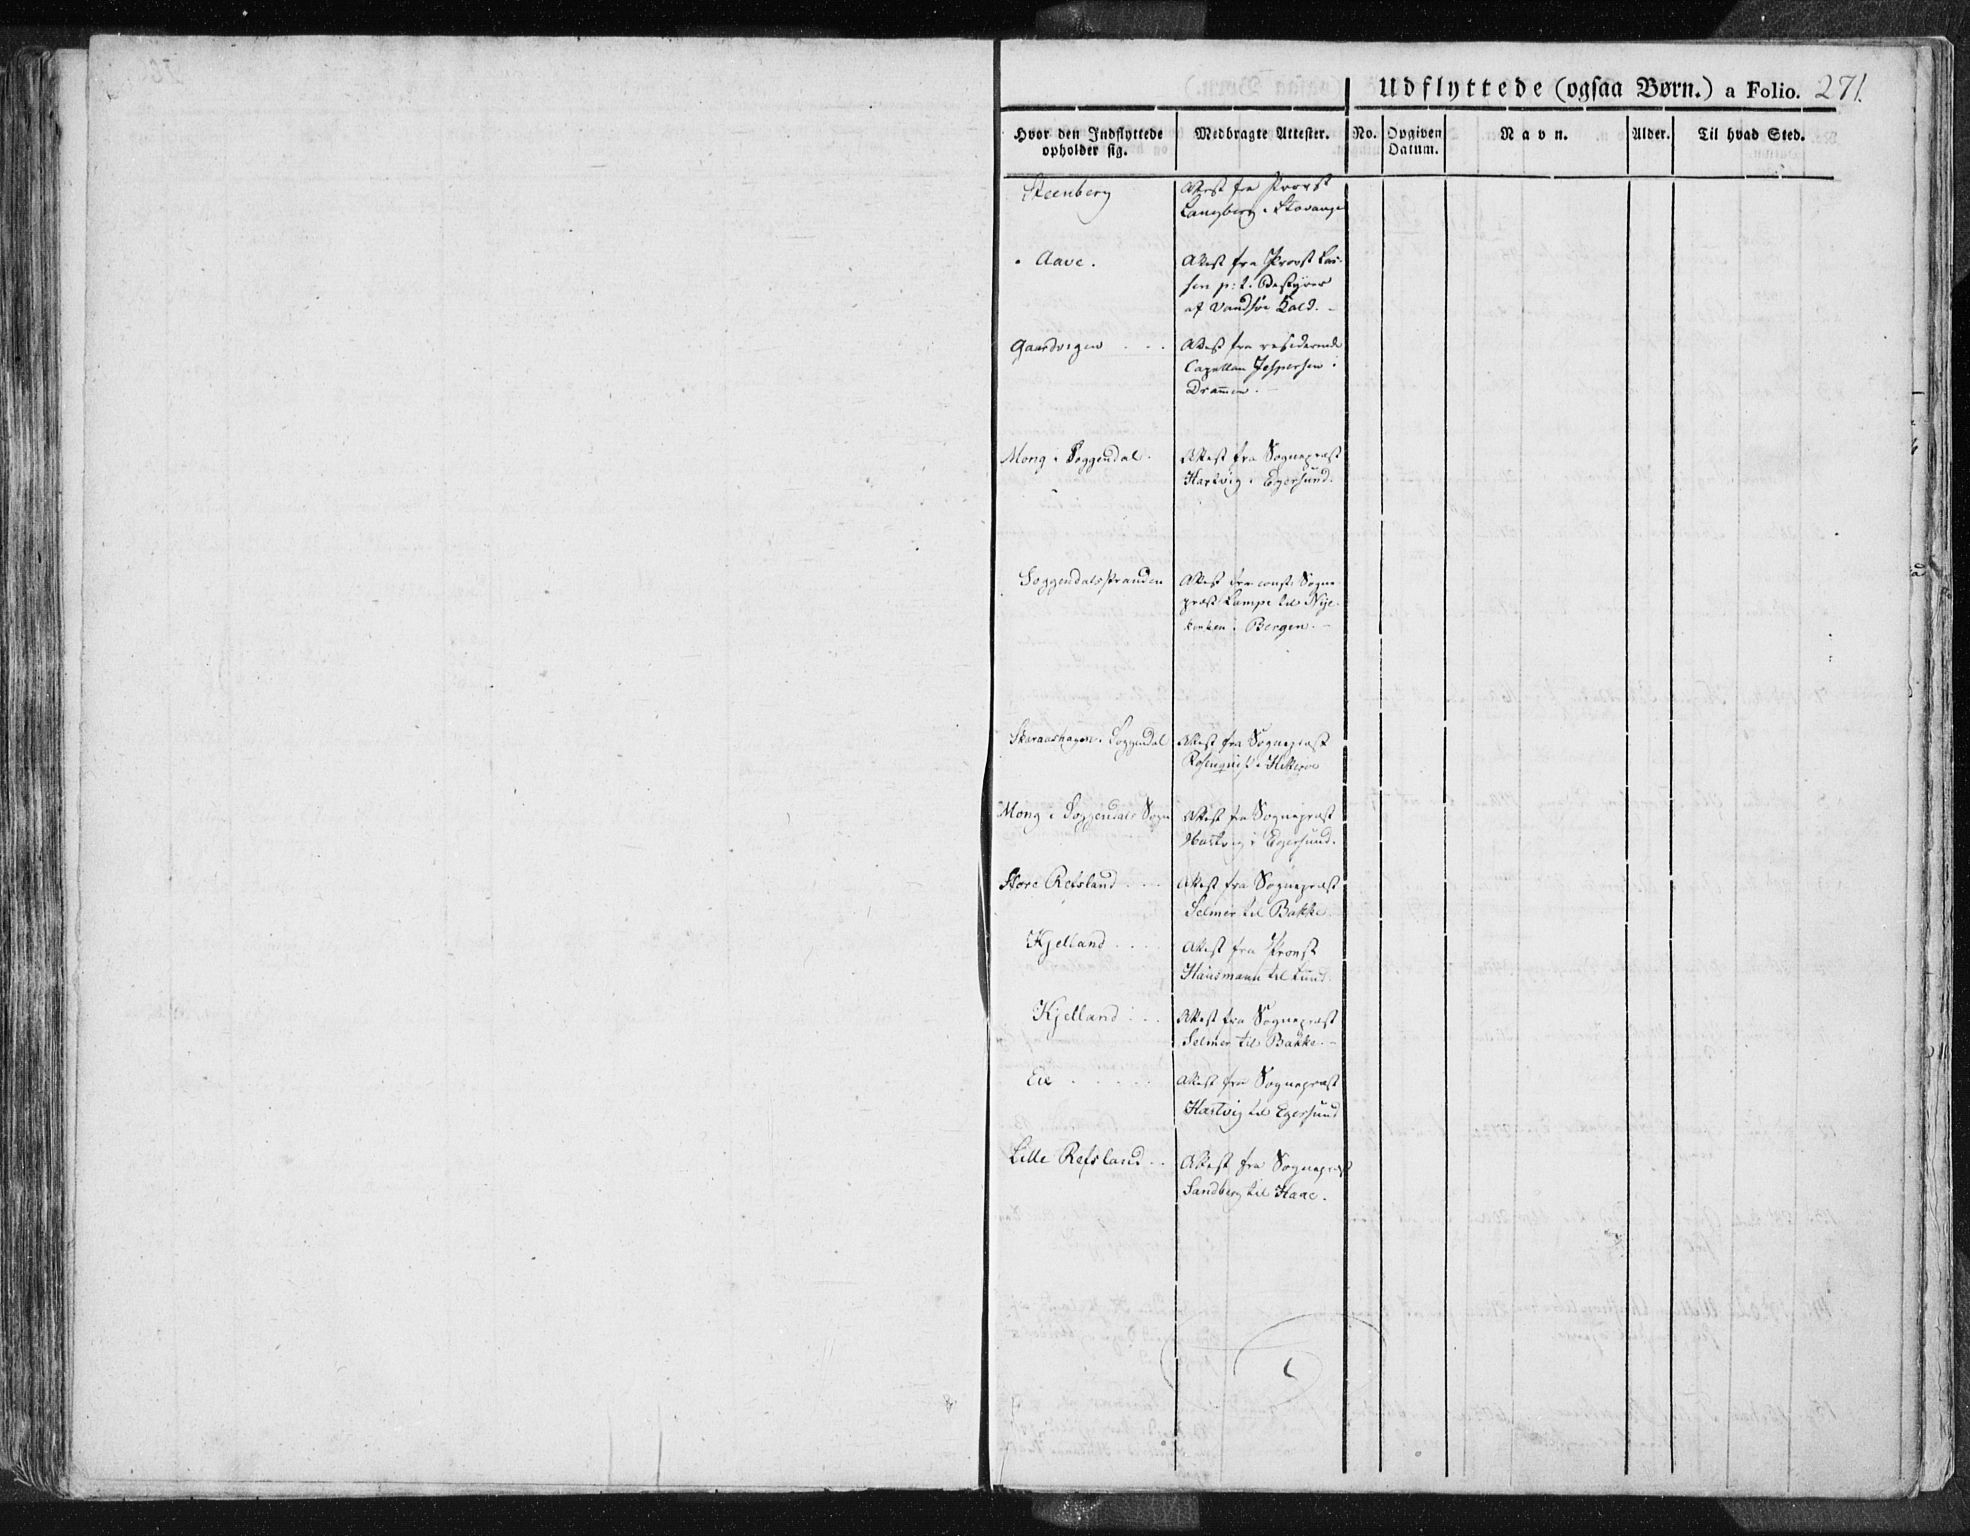 Udflyttede (ogsaa Børn.) a Folio. 271.
Hvor den Indflyttede opholder sig. Medbragte Attester. No. Opgiven Datum. Navn. Alder. Til hvad Sted.
Steenberg Attest fra Provst
Langberg i Stavanger
Aave. Attest fra Provst Las-
sen p: t. Bestyrer
af Vandsøe Kald.
Gaardvigen Attest fra residerende
Capellan Jespersen i
Drammen.
Mong i Soggendal. Attest fra Sognepræst
Hartvig i Egersund.
Soggendalsstranden Attest fra const: Sogne
præst Lampe til Nye-
kirken i Bergen.
Skaraashagen i Soggendal Attest fra Sognepræst
Rosenqvist i Hitterøe
Mong i Soggendals Sogn Attest fra Sognepræst
Hartvig i Egersund.
Store Refsland Attest fra Sognepræst
Selmer til Bakke.
Kjelland Attest fra Provst
Hausmann til Lund.
Kjelland Attest fra Sognepræst
Selmer til Bakke.
Eie Attest fra Sognepræst
Hartvig til Egersund
Lille Refsland Attest fra Sognepræst
Sandberg til Haae.